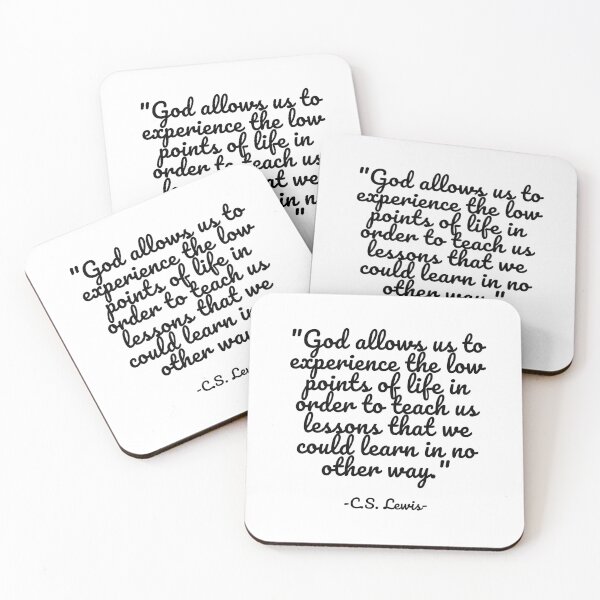 "God allows us to
experience the low
points of life in
order to teach us
we
in no
"
"God allows us to
experience the low
points of life in
order to teach us
lessons that we
could learn in no
other way."
"God allows us to
experience the low
points of life in
order to teach us
lessons that we
could learn in
other way
-C.S.
"God allows us to
experience the low
points of life in
order to teach us
lessons that we
could learn in no
other way."
-C.S. Lewis-